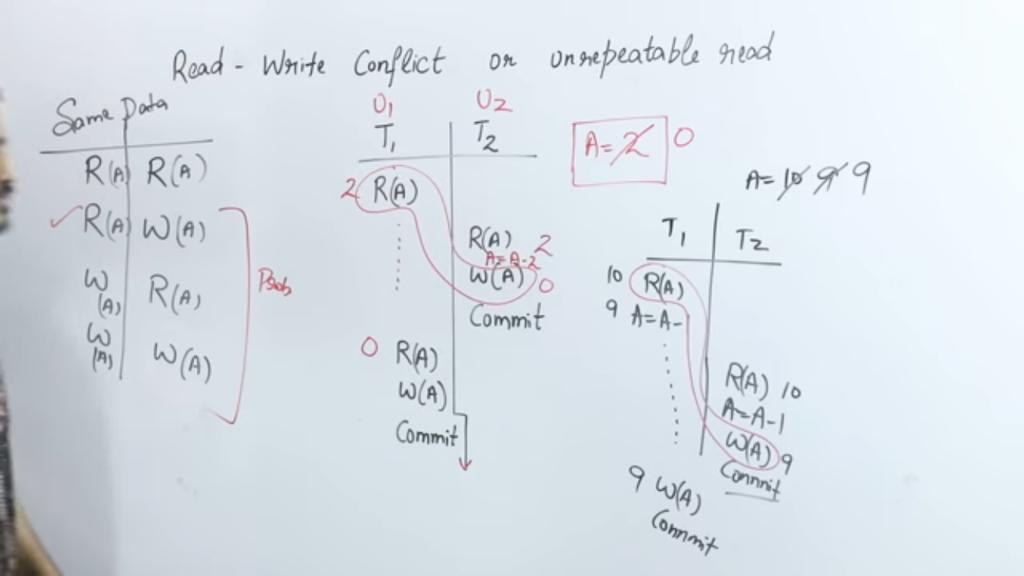 Read - Write Conflict or unrepeatable read
Same Data
R(A) R(A)
R(A) W(A)
W(A) R(A)
W(A) W(A)
Prob
U1 U2
T1 T2
2 R(A)
R(A) 2
A=A-2
W(A) 0
Commit
0 R(A)
W(A)
Commit
A=2 0
A=10 9 9
T1 T2
10 R(A)
9 A=A-
R(A) 10
A=A-1
W(A) 9
Commit
9 W(A)
Commit